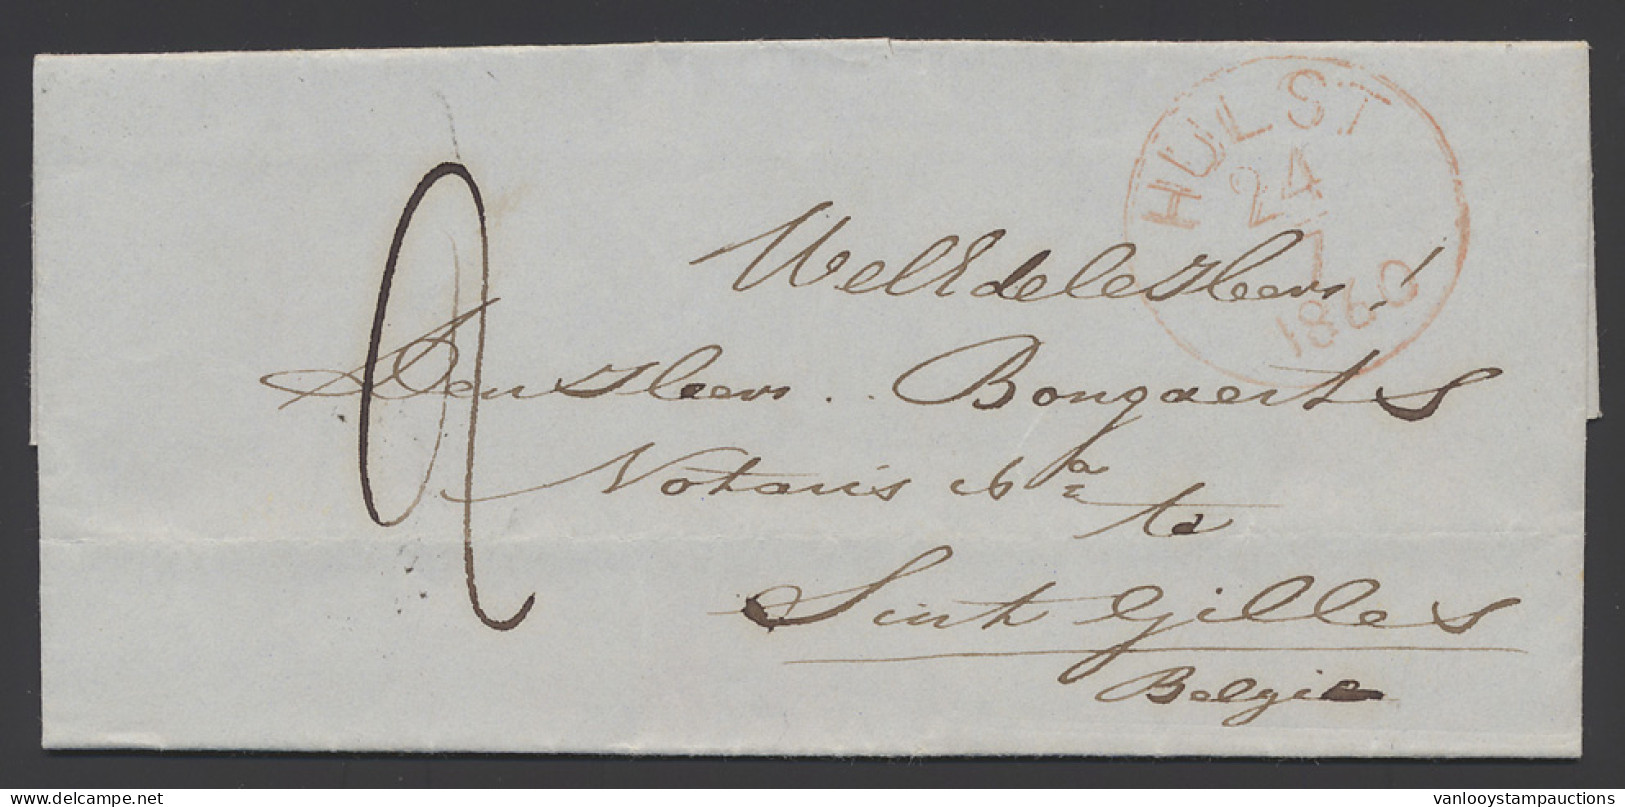 HULST
24
7
1860
2
WelEdele Heer!
Den Heer .. Bongaerts
Notaris
te
Sint Gilles
Belgie
vanlooystampauctions